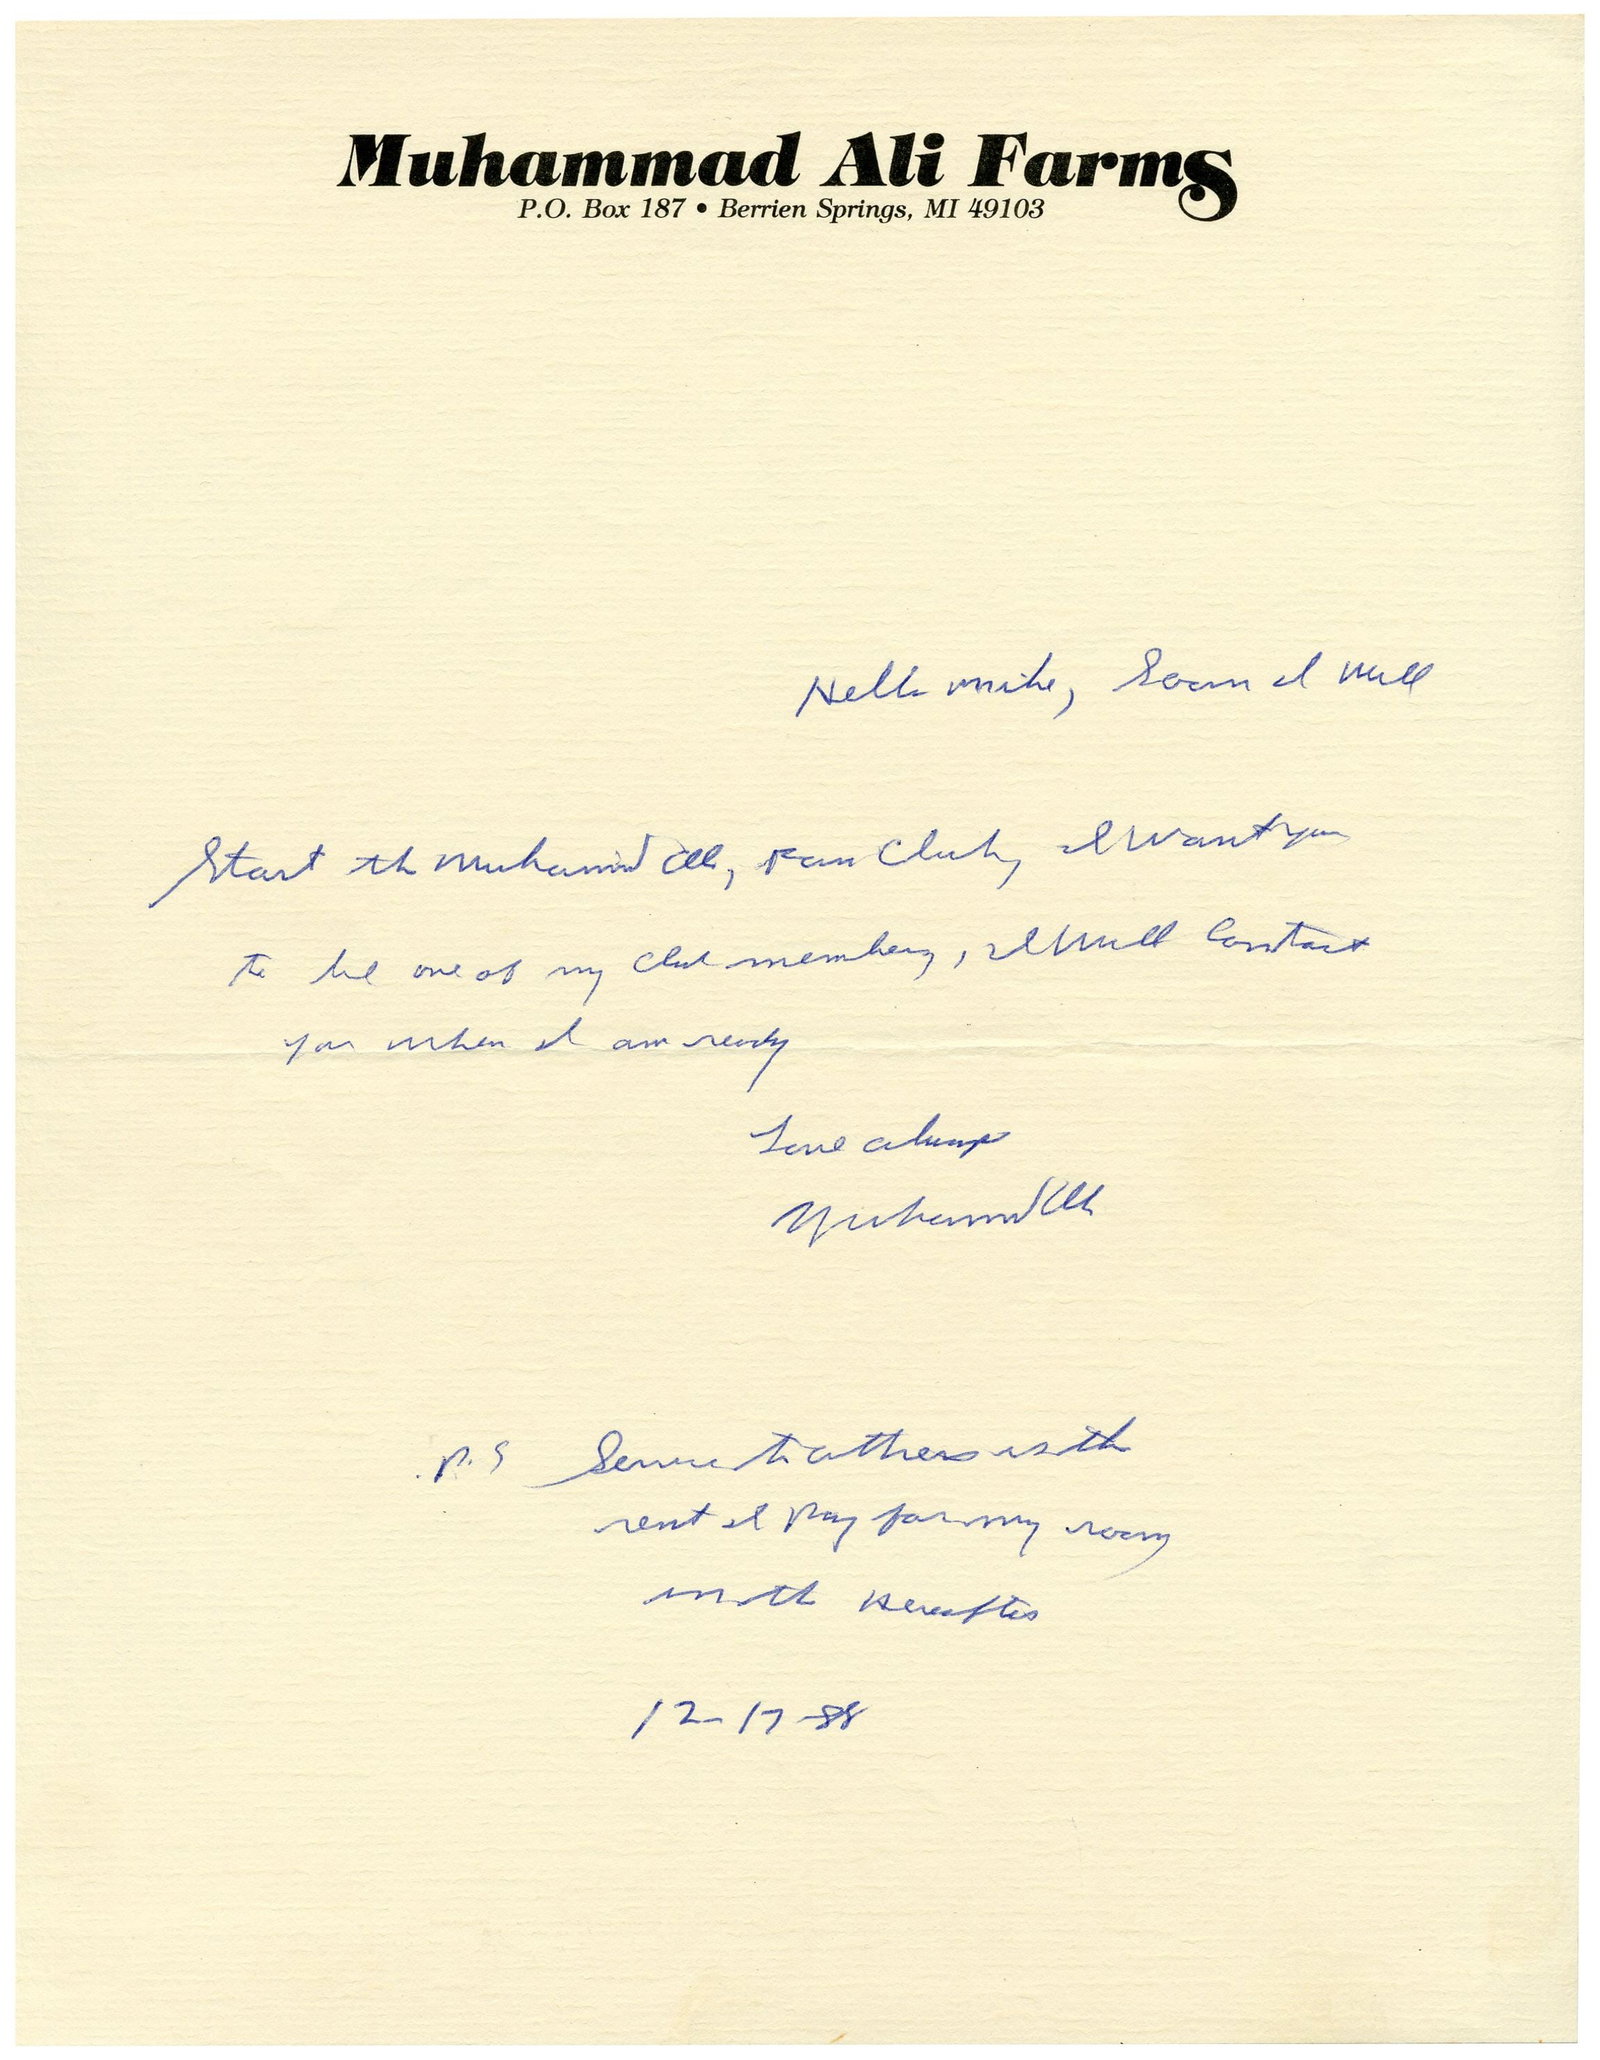 Muhammad Ali Farms
P.O. Box 187 • Berrien Springs, MI 49103
Hello mike, Soon I will
Start the Muhammad Ali, Fan Club, I Want you
to be one of my club members, I Will Contact
you when I am ready
Love always
Muhammad Ali
P.S Service to others is the
rent I pay for my room
in the Hereafter
12-17-88